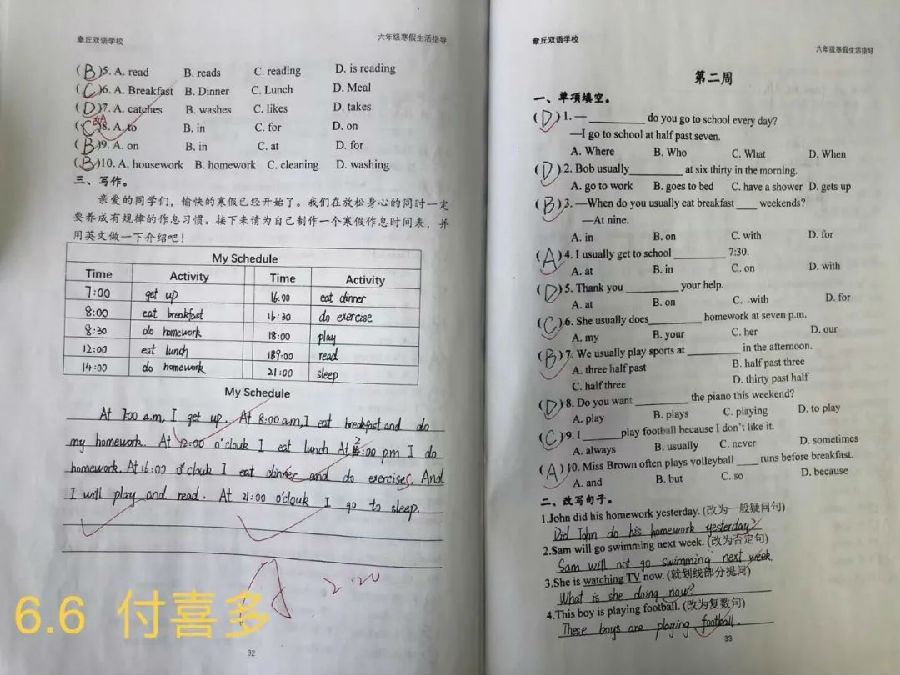 章丘双语学校
六年级寒假生活指导
(B)5. A. read B. reads C. reading D. is reading
(C)6. A. Breakfast B. Dinner C. Lunch D. Meal
(D)7. A. catches B. washes C. likes D. takes
(C)8. A. to B. in C. for D. on
(B)9. A. on B. in C. at D. for
(B)10. A. housework B. homework C. cleaning D. washing
三、写作。
亲爱的同学们，愉快的寒假已经开始了。我们在放松身心的同时一定
要养成有规律的作息习惯。接下来请为自己制作一个寒假作息时间表，并
用英文做一下介绍吧！
My Schedule
Time Activity Time Activity
7:00 get up 16:00 eat dinner
8:00 eat breakfast 16:30 do exercise
8:30 do homework 18:00 play
12:00 eat lunch 19:00 read
14:00 do homework 21:00 sleep
My Schedule
At 7:00 a.m, I get up. At 8:00 am, I eat breakfast and do
my homework. At 12:00 o'clouk I eat lunch At 2:00 pm I do
homework. At 16:00 o'clouk I eat dinner and do exercises. And
I will play and read. At 21:00 o'clouk I go to sleep.
A 2.20
6.6 付喜多
32
章丘双语学校
六年级寒假生活指导
第二周
一、单项填空。
(D)1. — ________ do you go to school every day?
—I go to school at half past seven.
A. Where B. Who C. What D. When
(D)2. Bob usually ________ at six thirty in the morning.
A. go to work B. goes to bed C. have a shower D. gets up
(B)3. —When do you usually eat breakfast ____ weekends?
—At nine.
A. in B. on C. with D. for
(A)4. I usually get to school ________ 7:30.
A. at B. in C. on D. with
(D)5. Thank you ________ your help.
A. at B. on C. with D. for
(C)6. She usually does ________ homework at seven p.m.
A. my B. your C. her D. our
(B)7. We usually play sports at ________ in the afternoon.
A. three half past B. half past three
C. half three D. thirty past half
(D)8. Do you want ________ the piano this weekend?
A. play B. plays C. playing D. to play
(C)9. I ______ play football because I don't like it.
A. always B. usually C. never D. sometimes
(A)10. Miss Brown often plays volleyball ____ runs before breakfast.
A. and B. but C. so D. because
二、改写句子。
1.John did his homework yesterday. (改为一般疑问句)
Did John do his homework yesterday?
2.Sam will go swimming next week. (改为否定句)
Sam will not go swimming next week.
3.She is watching TV now. (就划线部分提问)
What is she doing now?
4.This boy is playing football. (改为复数句)
These boys are playing football.
33